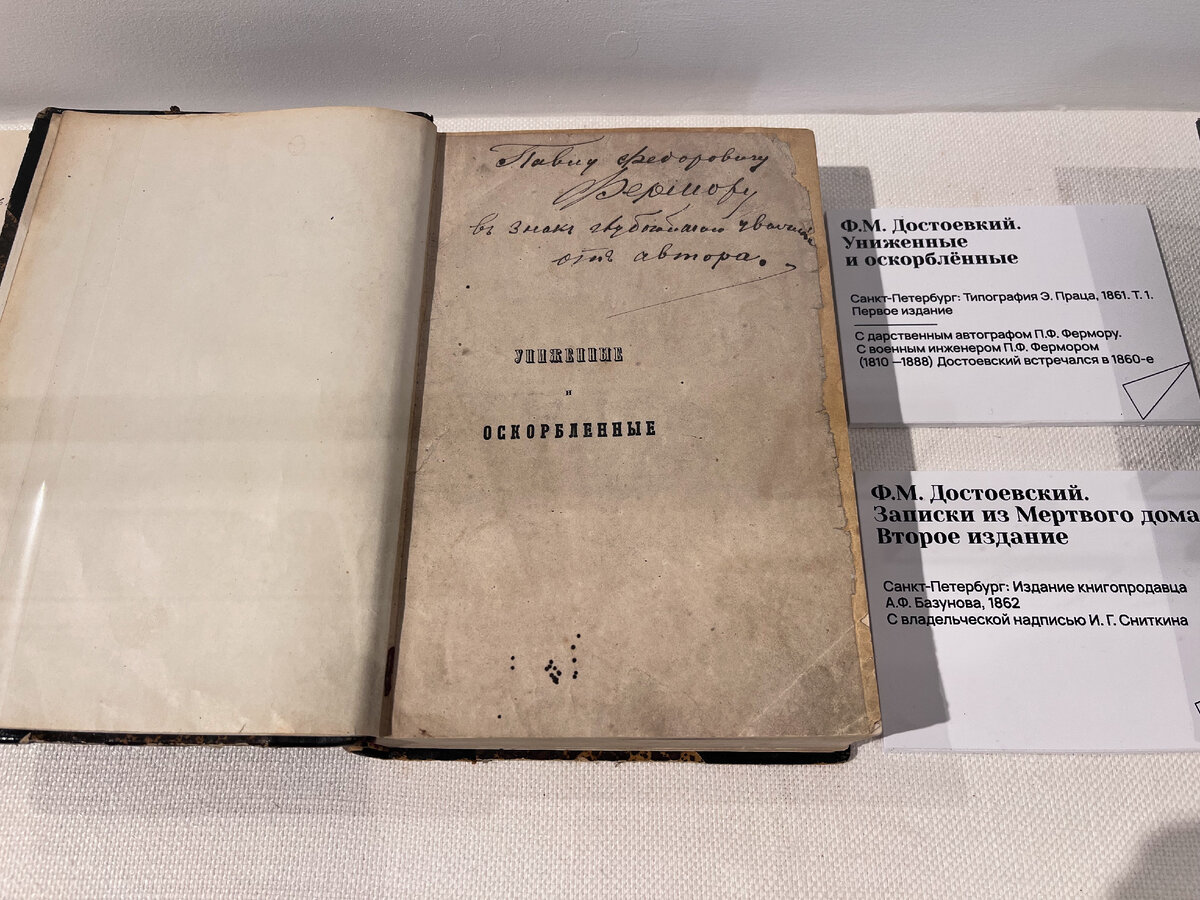 Павлу Федоровичу
Фермору
въ знакъ глубочайшаго уваженія
отъ автора.
УНИЖЕННЫЕ
и
ОСКОРБЛЕННЫЕ
Ф.М. Достоевкий.
Униженные
и оскорблённые
Санкт-Петербург: Типография Э. Праца, 1861. Т. 1.
Первое издание
С дарственным автографом П.Ф. Фермору.
С военным инженером П.Ф. Фермором
(1810 —1888) Достоевский встречался в 1860-е
Ф.М. Достоевский.
Записки из Мертвого дома
Второе издание
Санкт-Петербург: Издание книгопродавца
А.Ф. Базунова, 1862
С владельческой надписью И. Г. Сниткина